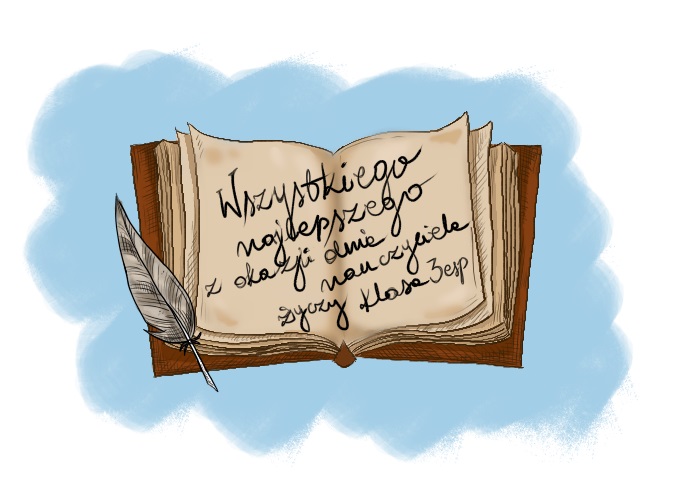 Wszystkiego
najlepszego
z okazji dnia
nauczyciela
życzy klasa 3esp